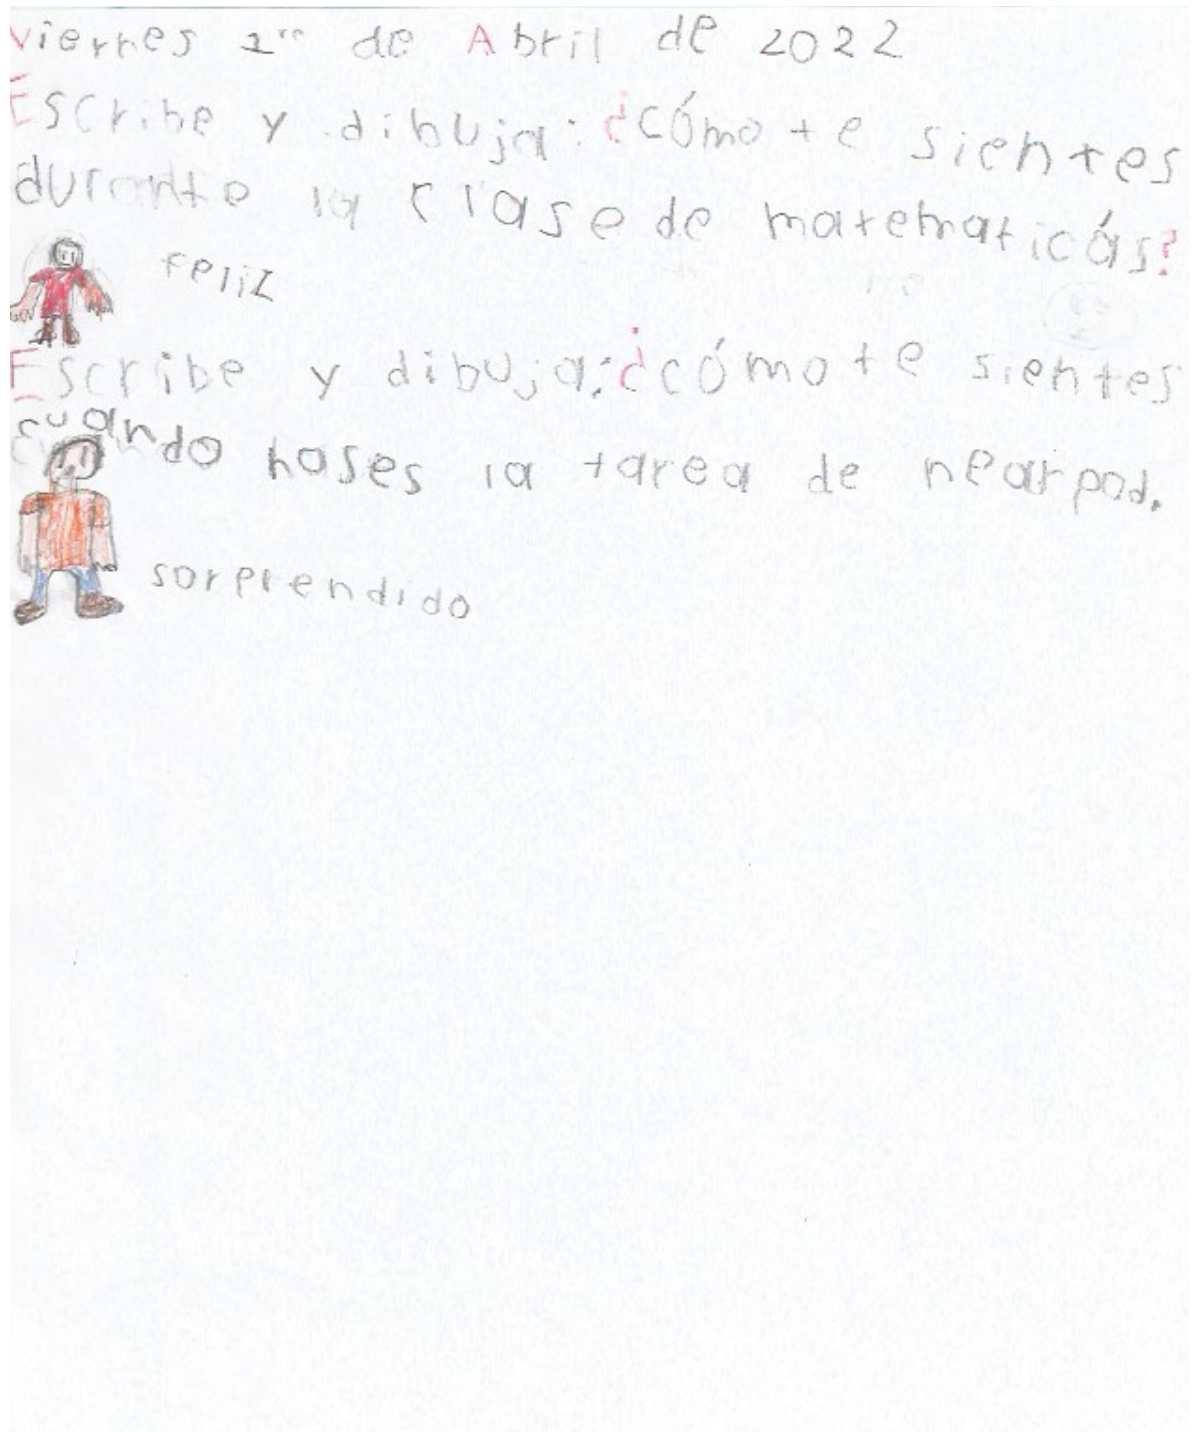 viernes 1ro de Abril de 2022
Escribe y dibuja: ¿cómo te sientes
durante la clase de matematicás?
feliz
Escribe y dibuja: ¿cómo te sientes
cuando hases la tarea de nearpod.
sorprendido